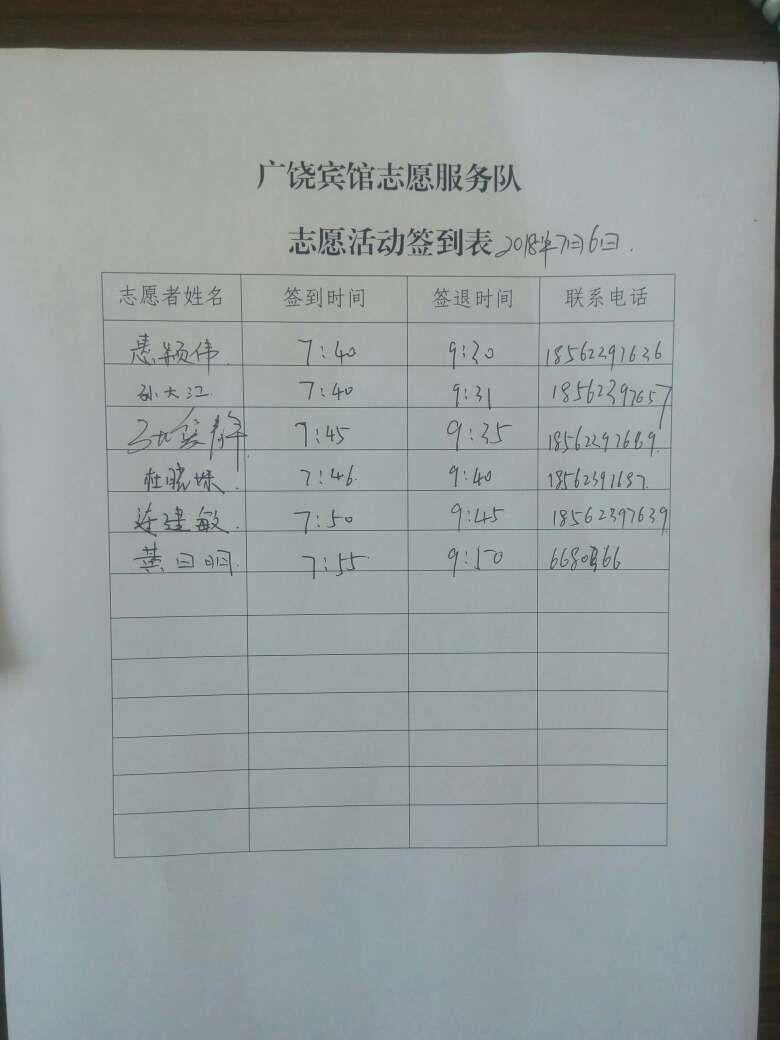 广饶宾馆志愿服务队
志愿活动签到表 2018年7月6日.
志愿者姓名 签到时间 签退时间 联系电话
惠颖伟. 7:40 9:30 18562397636
孙大江. 7:40 9:31 18562397657
7:45 9:35
杜晓姝. 7:46. 9:40 18562397687.
连建敏. 7:50 9:45 18562397639
黄日明. 7:55. 9:50